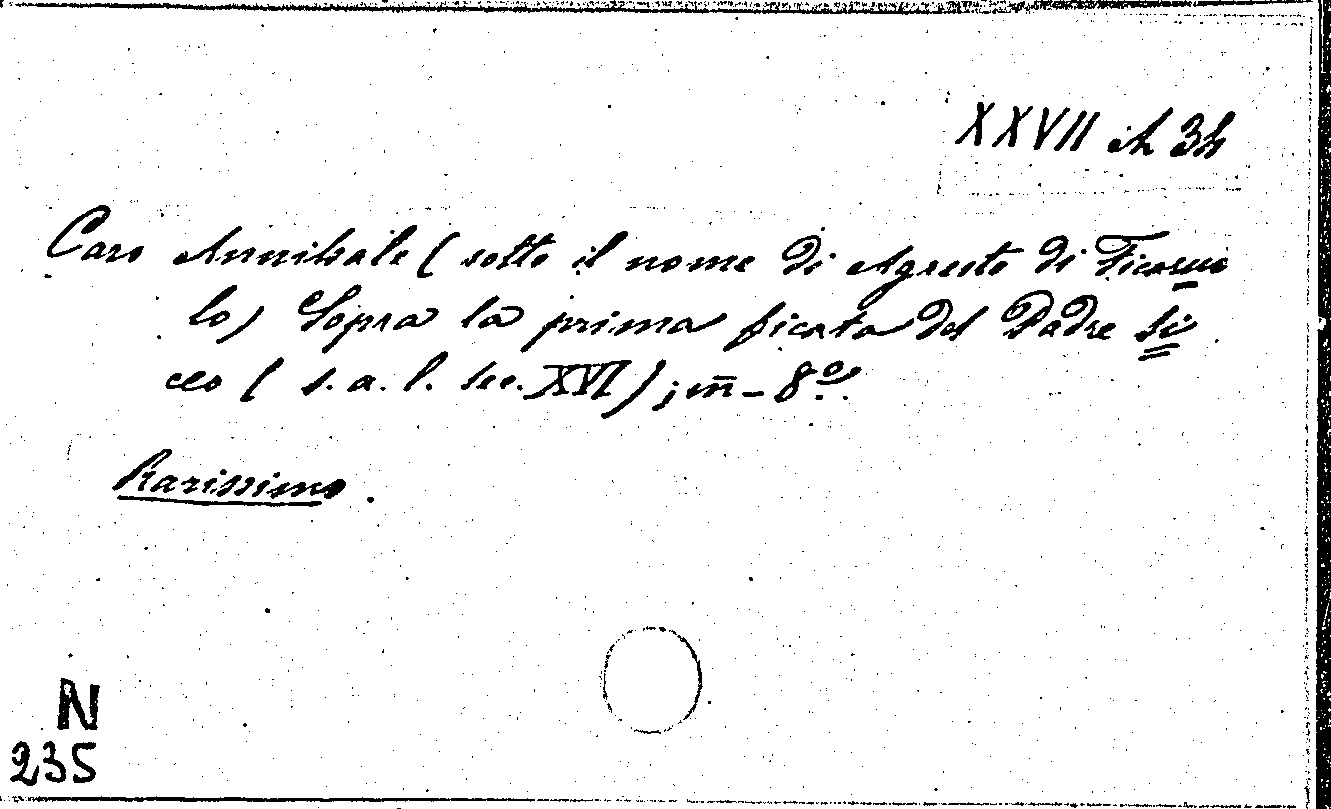 XXVII A 34
Caro Annibale (sotto il nome di Agresto di Ficarua
lo) Sopra la prima ficata del Padre Si
ceo (s. a. l. sec. XVI); m̄ - 8º.
Rarissimo.
N
235